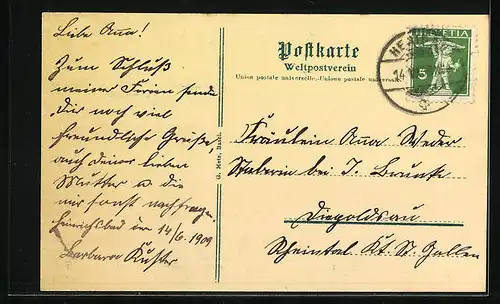 Liebe Anna!
Zum Schluß
meiner Ferien sende
Dir noch viel
freundliche Grüße,
auch deiner lieben
Mutter u. die
mir sonst nachfragen.
Heinrichsbad den 14/6. 1909
Barbara Kuster
G. Metz, Basel.
Postkarte
Weltpostverein
Union postale universelle.-Unione postale universale
HELVETIA
5
HE
14
Fräulein Anna Weder
bei J.
Diepoldsau
Rheintal Kt. St. Gallen